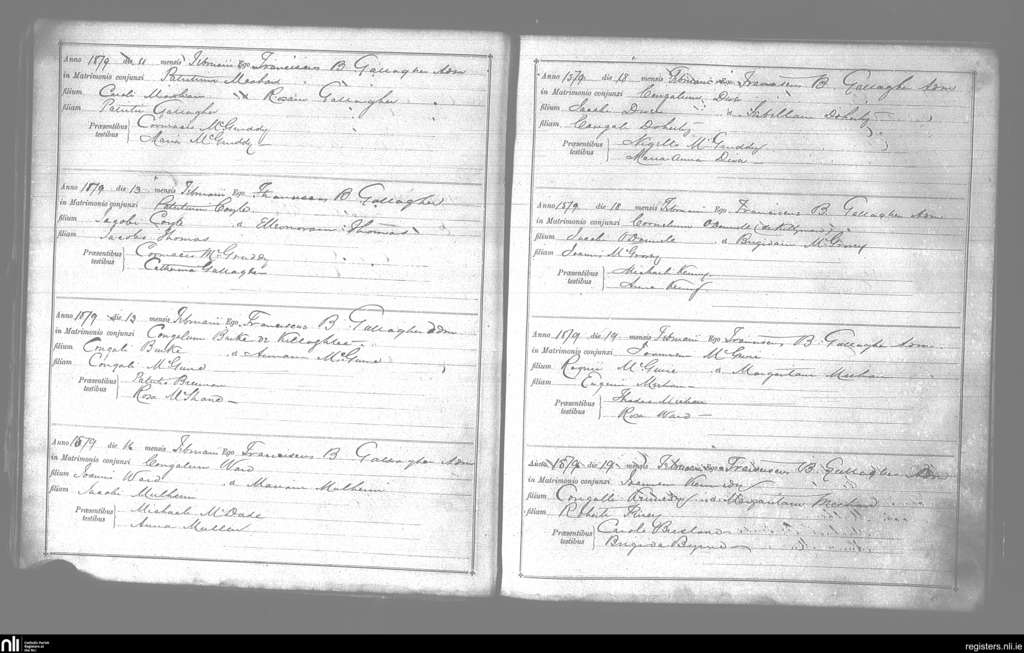 Anno 1879 die 11 mensis Februarii Ego Franciscus B Gallagher Adm
in Matrimonio conjunxi Patritium Meehan
filium Caroli Meehan & Rosam Gallagher
filiam Patritii Gallagher
Præsentibus testibus Cormacus McGruddy
Maria McGruddy
Anno 1879 die 13 mensis Februarii Ego Franciscus B Gallagher
in Matrimonio conjunxi Patritium Coyle
filium Jacobi Coyle & Elleonoram Thomas
filiam Jacobi Thomas
Præsentibus testibus Cormacus McGruddy
Catherina Gallagher
Anno 1879 die 13 mensis Februarii Ego Franciscus B Gallagher Adm
in Matrimonio conjunxi Congalum Burke de
filium Congali Burke & Annam
filiam Congali
Præsentibus testibus Brennan
Rosa McShane
Anno 1879 die 16 mensis Februarii Ego Franciscus B Gallagher Adm
in Matrimonio conjunxi Congalum Ward
filium Joannis Ward & Mariam Mulhern
filiam Jacobi Mulhern
Præsentibus testibus Michael McDade
Anna Mullen
Anno 1879 die 18 mensis Februarii Ego Franciscus B Gallagher Adm
in Matrimonio conjunxi Congalum
filium Jacobi & Isabellam Doherty
filiam Congali Doherty
Præsentibus testibus McGruddy
Maria Anna
Anno 1879 die 18 mensis Februarii Ego Franciscus B Gallagher Adm
in Matrimonio conjunxi Cornelium
filium Jacobi & Brigidam
filiam Joannis
Præsentibus testibus Michael Kenny
Anna Kenny
Anno 1879 die 19 mensis Februarii Ego Franciscus B Gallagher Adm
in Matrimonio conjunxi Joannem McGuire
filium McGuire & Margaritam Meehan
filiam Eugenii Meehan
Præsentibus testibus Meehan
Rosa Ward
Anno 1879 die 19 mensis Februarii Ego Franciscus B Gallagher Adm
in Matrimonio conjunxi Joannem Kennedy
filium Congalli Kennedy & Margaritam
filiam Roberti
Præsentibus testibus Carolo Breslan
Brigida Byrne
nli Catholic Parish Registers at the NLI
registers.nli.ie